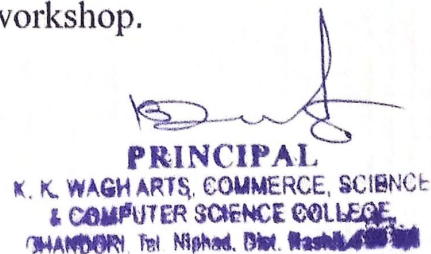 workshop.
PRINCIPAL
K. K. WAGH ARTS, COMMERCE, SCIENCE
& COMPUTER SCIENCE COLLEGE,
CHANDORI, Tal. Niphad, Dist. Nashik